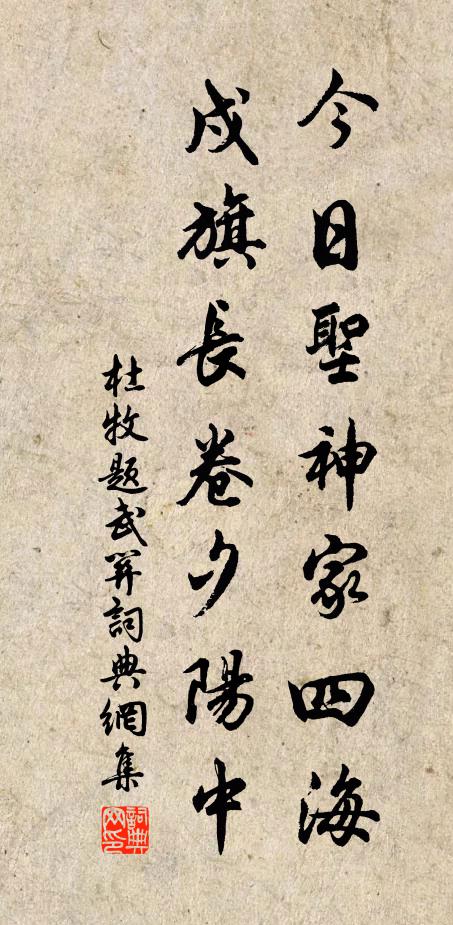 今日聖神家四海
戍旗長卷夕陽中
杜牧題武関詞典網集
詞典网印